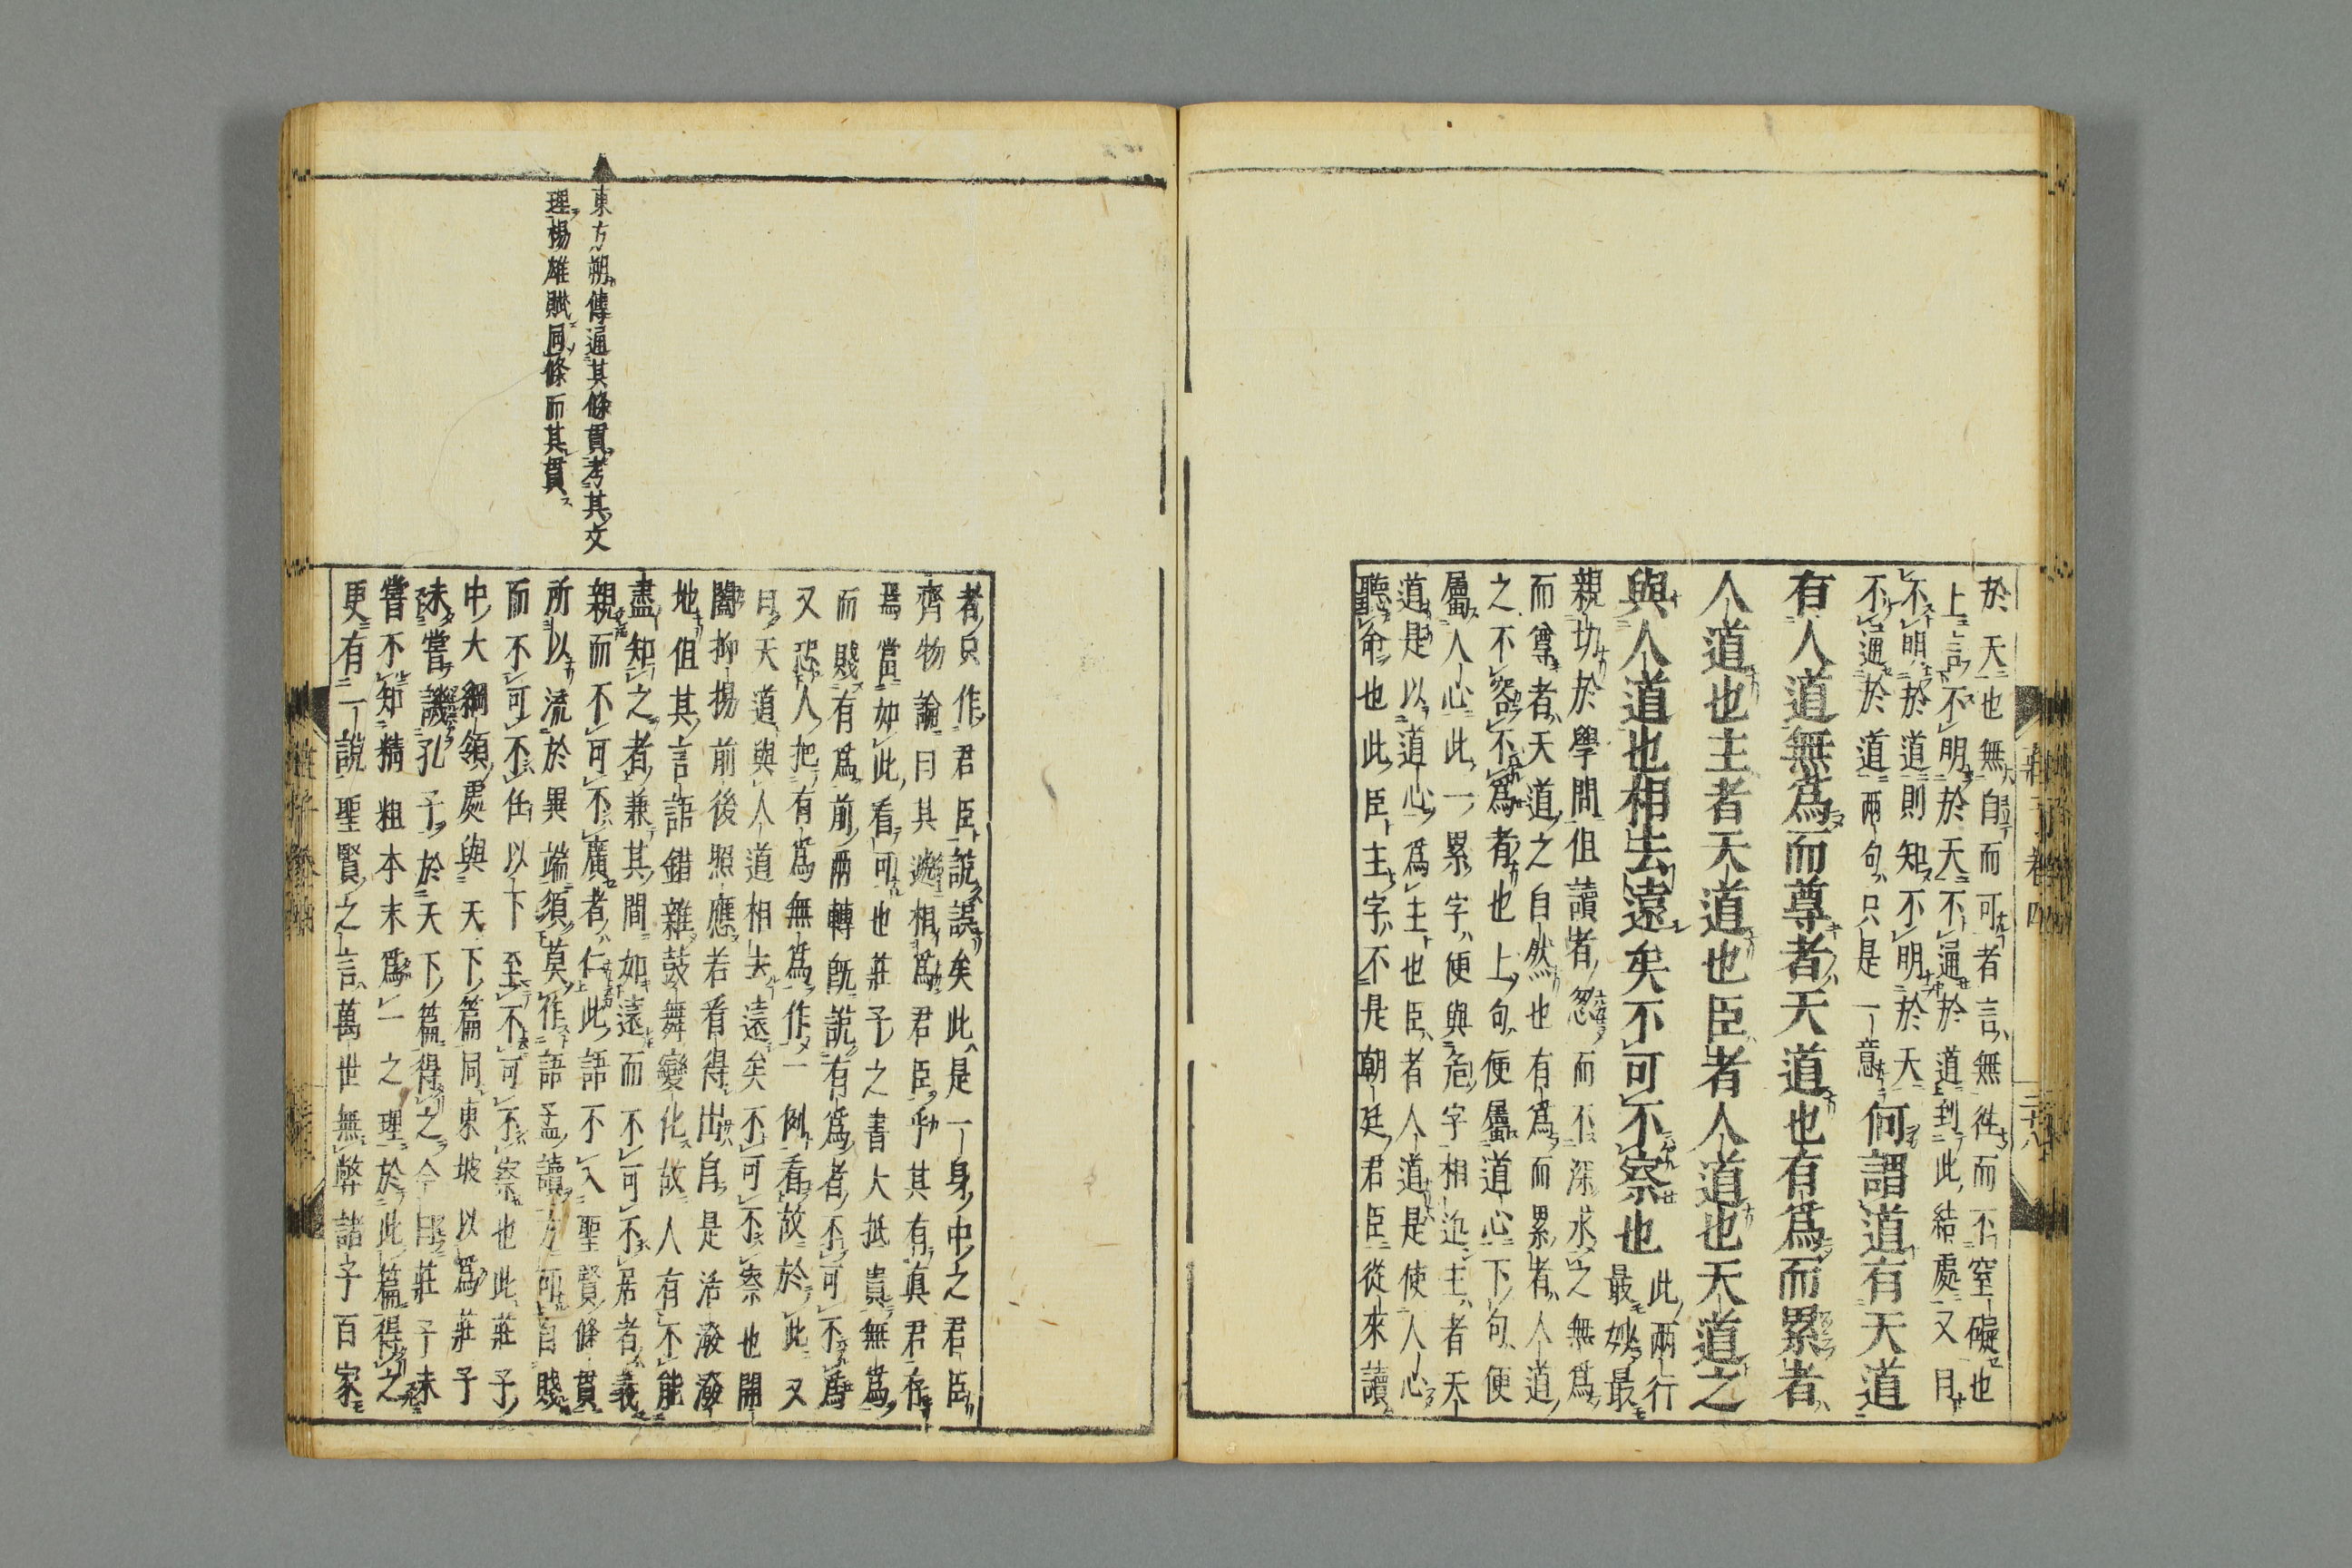 於天也無自而可者言無往而不窒礙也
上言不明於天不通於道到此結處又曰
不明於道則知不明於天
不通於道兩句只是一意何謂道有天道
有人道無爲而尊者天道也有爲而累者
人道也主者天道也臣者人道也天道之
與人道也相去遠矣不可不察也此兩行
最妙最
親切於學問但讀者忽而不深求之無爲
而尊者天道之自然也有爲而累者人道
之不容不爲者也上句便屬道心下句便
屬人心此一累字便與危字相近主者天
道是以道心爲主也臣者人道是使人心
聽命也此臣主字不是朝廷君臣從來讀
莊子卷四
三十八
者只作君臣說誤矣此是一身中之君臣
齊物論曰其遞相爲君臣乎其有真君存
焉當如此看可也莊子之書大抵貴無爲
而賤有爲前兩轉既說有爲者不可不爲
又恐人把有爲無爲作一例看故於此又
曰天道與人道相去遠矣不可不察也開
闔抑揚前後照應若看得出自是活潑潑
地但其言語錯雜鼓舞變化故人有不能
盡知之者兼其間如遠而不可不居者義
親而不可不廣者仁此語不入聖賢條貫
所以流於異端須莫作語孟讀方可自賤
而不可不任以下至不可不察也此莊子
中大綱領處與天下篇同東坡以爲莊子
未嘗譏孔子於天下篇得之今曰莊子未
嘗不知精粗本末爲一之理於此篇得之
更有一說聖賢之言萬世無弊諸子百家
東方朔傳通其條貫考其文
理楊雄賦同條而其貫